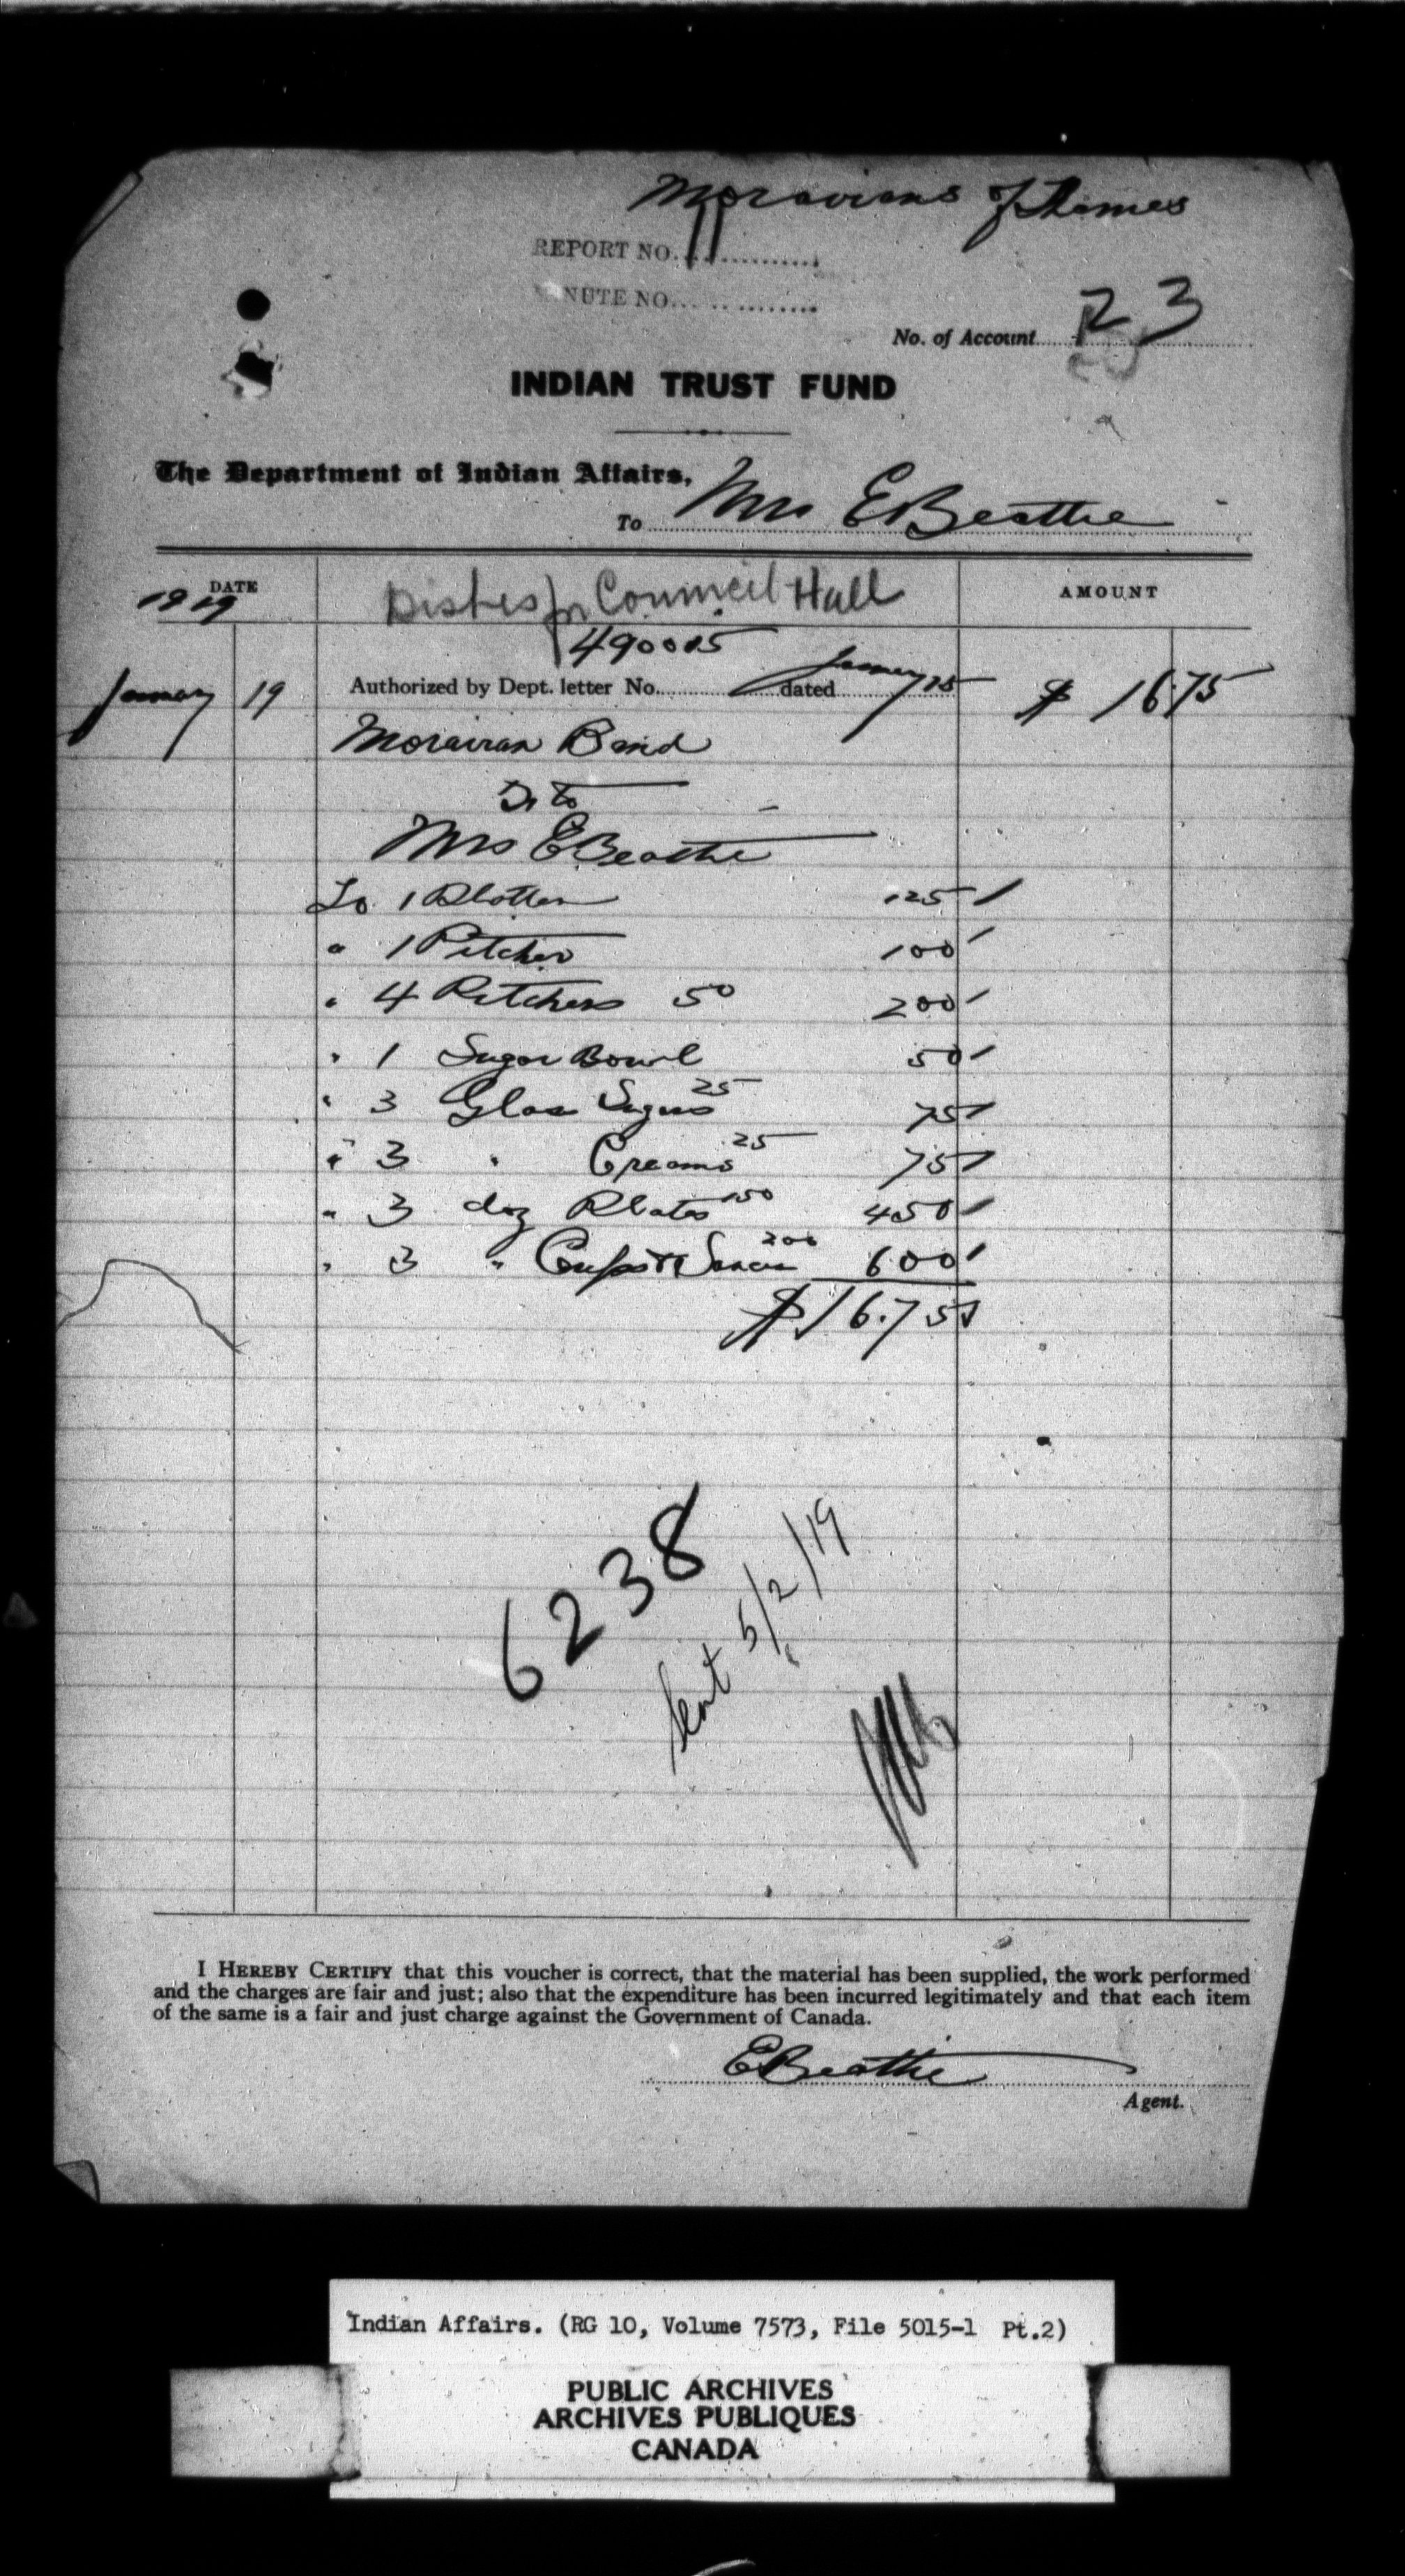 Moravians of Thames
REPORT NO..............
NUTE NO..............
No. of Account 23
INDIAN TRUST FUND
The Department of Indian Affairs,
To Mrs E Beattie
DATE
1919
Dishes for Council Hall
AMOUNT
490015
January 19 Authorized by Dept. letter No. dated January 15 $ 16.75
Moravian Band
Dr to
Mrs E Beattie
To 1 Platter 125
" 1 Pitcher 100
" 4 Pitchers 50 200
" 1 Sugar Bowl 50
" 3 Glass Sugars 25 75
" 3 " Creams 25 75
" 3 doz Plates 150 450
" 3 " Cups & Saucers 200 600
$16.75
6238
Sent 5/2/19
I HEREBY CERTIFY that this voucher is correct, that the material has been supplied, the work performed
and the charges are fair and just; also that the expenditure has been incurred legitimately and that each item
of the same is a fair and just charge against the Government of Canada.
E Beattie
Agent.
Indian Affairs. (RG 10, Volume 7573, File 5015-1 Pt.2)
PUBLIC ARCHIVES
ARCHIVES PUBLIQUES
CANADA